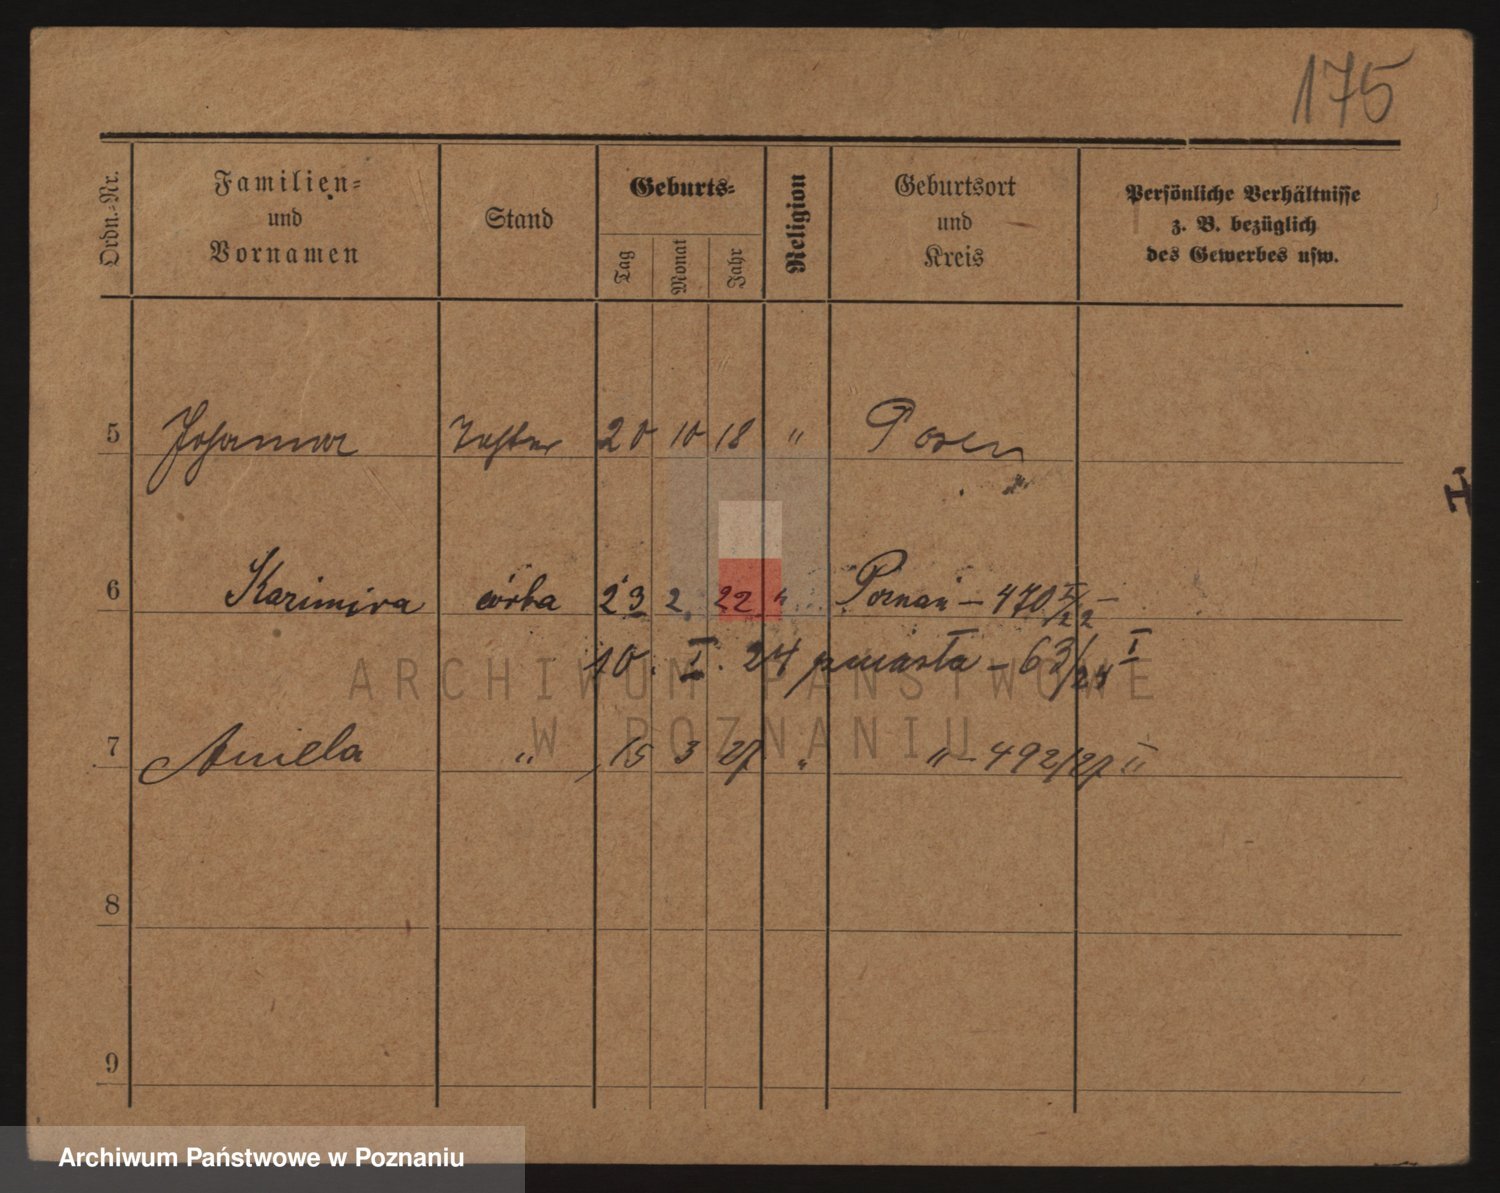 175
Ordn.-Nr.
Familien-
und
Vornamen
Stand
Geburts-
Tag
Monat
Jahr
Religion
Geburtsort
und
Kreis
Persönliche Verhältnisse
z. B. bezüglich
des Gewerbes usw.
5 Johanna Tochter 20 10 18 " Posen
6 Kazimira córka 23 2. 22 " Poznań – 470 I/22
10. I. 24 – 63/24 I
7 Aniela " 15 3 27 " " – 492/27 II
8
9
ARCHIWUM PAŃSTWOWE
W POZNANIU
Archiwum Państwowe w Poznaniu